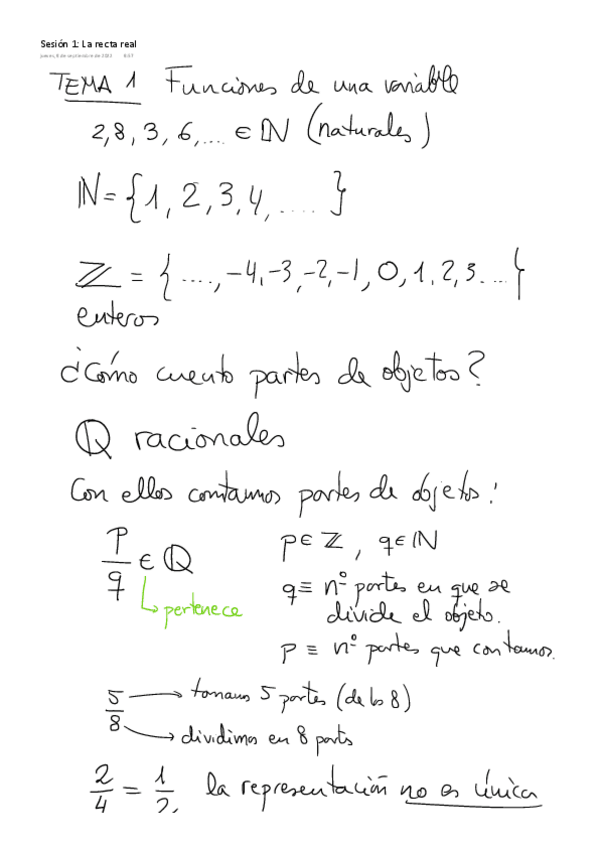 Sesión 1: La recta real
jueves, 8 de septiembre de 2022 8:57
TEMA 1 Funciones de una variable
2, 8, 3, 6, .... ∈ ℕ (naturales)
ℕ = {1, 2, 3, 4, ..... }
ℤ = { ...., -4, -3, -2, -1, 0, 1, 2, 3 ... }
enteros
¿Cómo cuento partes de objetos?
ℚ racionales
Con ellos contamos partes de objetos:
p/q ∈ ℚ p ∈ ℤ, q ∈ ℕ
pertenece
q ≡ nº partes en que se
divide el objeto.
p ≡ nº partes que contamos.
5/8 → tomamos 5 partes (de los 8)
→ dividimos en 8 parts
2/4 = 1/2 la representación no es única